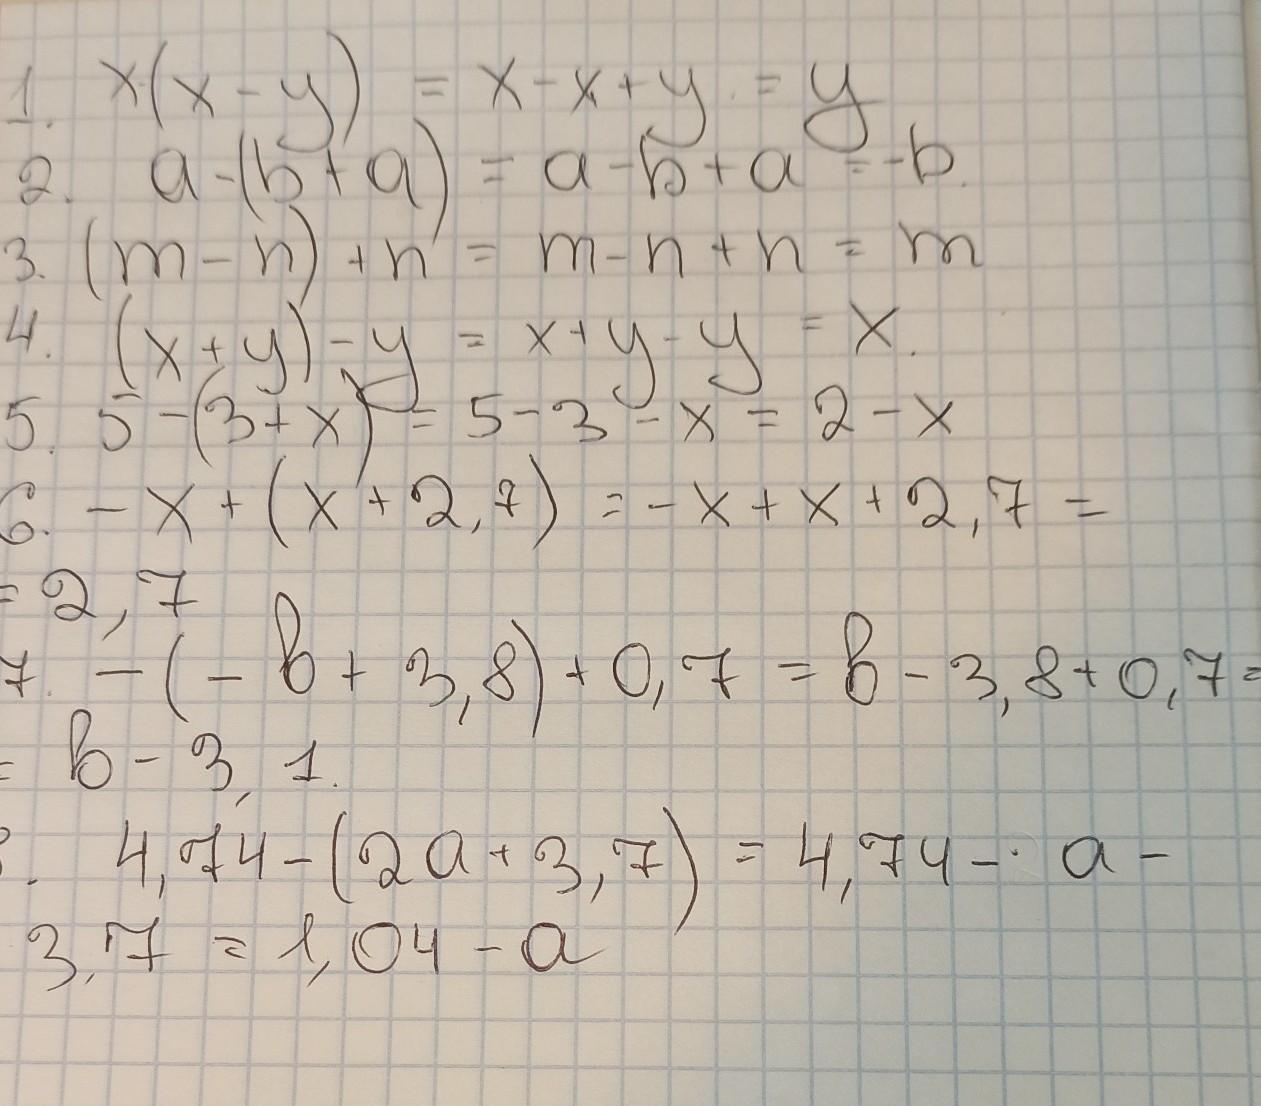 1. x(x-y) = x-x+y = y
2. a-(b+a) = a-b+a = -b.
3. (m-n)+n = m-n+n = m
4. (x+y)-y = x+y-y = x.
5. 5-(3+x) = 5-3-x = 2-x
6. -x+(x+2,7) = -x+x+2,7 =
= 2,7
7. -(-b+3,8)+0,7 = b-3,8+0,7 =
= b-3,1.
. 4,74-(2a+3,7) = 4,74- a -
3,7 = 1,04-a